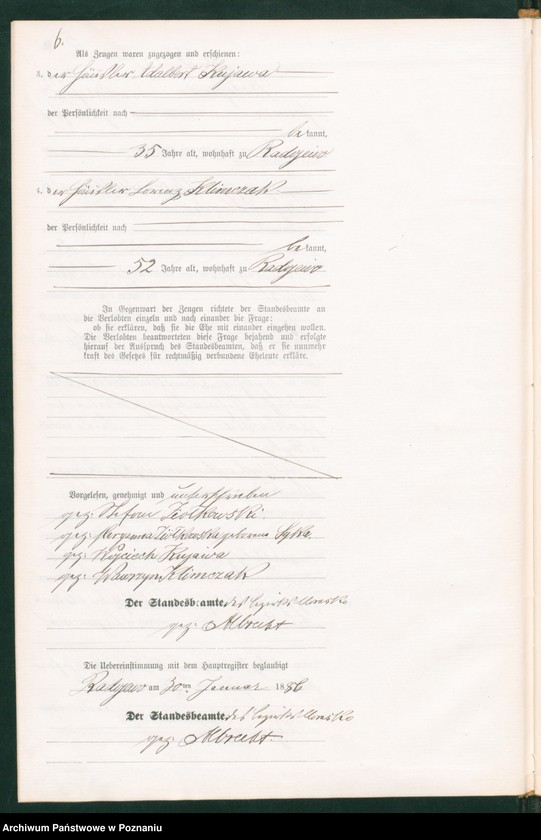 6.
Als Zeugen waren zugezogen und erschienen:
3. der Häusler Adalbert Kujawa
der Persönlichkeit nach
bekannt,
35 Jahre alt, wohnhaft zu Radojewo
4. der Häusler Lorenz Klimczak
der Persönlichkeit nach
bekannt,
52 Jahre alt, wohnhaft zu Radojewo
In Gegenwart der Zeugen richtete der Standesbeamte an
die Verlobten einzeln und nach einander die Frage:
ob sie erklären, daß sie die Ehe mit einander eingehen wollen.
Die Verlobten beantworteten diese Frage bejahend und erfolgte
hierauf der Ausspruch des Standesbeamten, daß er sie nunmehr
kraft des Gesetzes für rechtmäßig verbundene Eheleute erkläre.
Vorgelesen, genehmigt und unterschrieben
gez: Stefan Ziołkowski
gez: Ziółkowska geborene
gez: Wojciech Kujawa
gez: Wawrzyn Klimczak
Der Standesbeamte. des Bezirks Umultowo
gez: Albrecht
Die Uebereinstimmung mit dem Hauptregister beglaubigt
Radojewo am 30ten Januar 1886
Der Standesbeamte. des Bezirks Umultowo
gez: Albrecht.
Archiwum Państwowe w Poznaniu